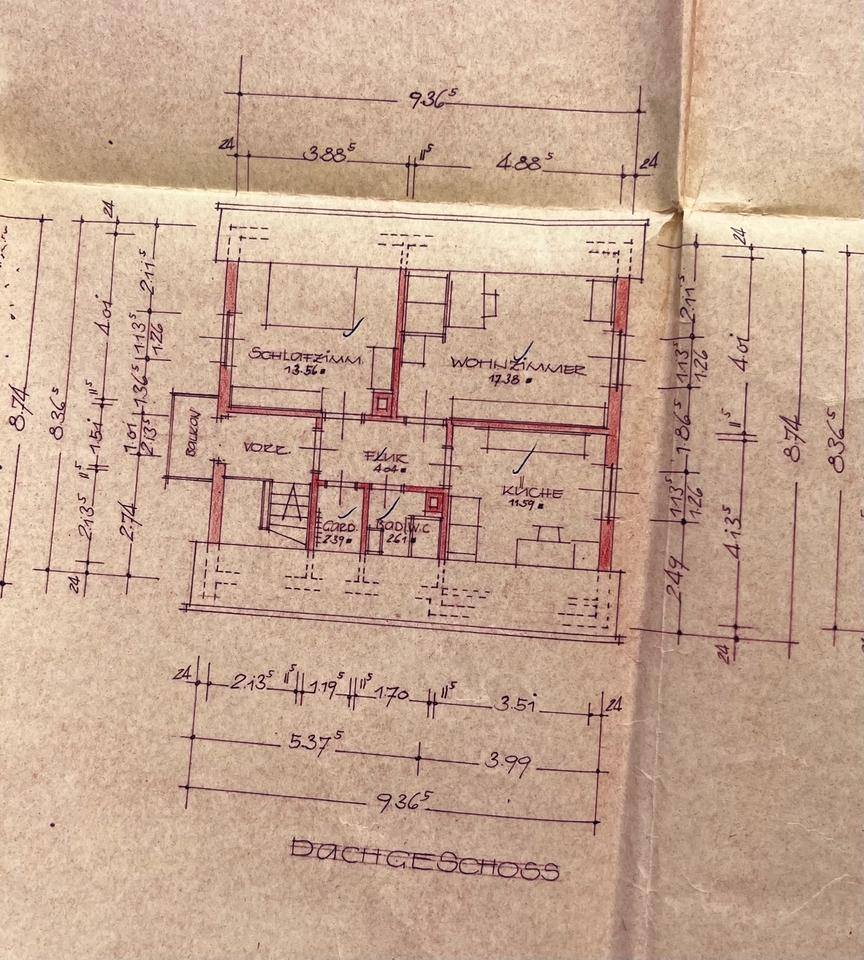 9.36⁵
24 3.88⁵ 11⁵ 4.88⁵ 24
24
2.11⁵
4.01
1.13⁵
1.26
8.74
8.36⁵
11⁵
1.36⁵
1.51
1.01
2.13⁵
11⁵
2.13⁵
2.74
24
SCHLAFZIMM.
13.56
WOHNZIMMER
17.38
BALKON
VORR.
FLUR
4.04
KÜCHE
11.59
GARD.
2.39
BAD.W.C
2.61
24
2.11⁵
4.01
1.13⁵
1.26
11⁵
1.86⁵
8.74
8.36⁵
1.13⁵
1.26
4.13⁵
2.49
24
24 2.13⁵ 11⁵ 1.19⁵ 11⁵ 1.70 11⁵ 3.51 24
5.37⁵ 3.99
9.36⁵
DACHGESCHOSS